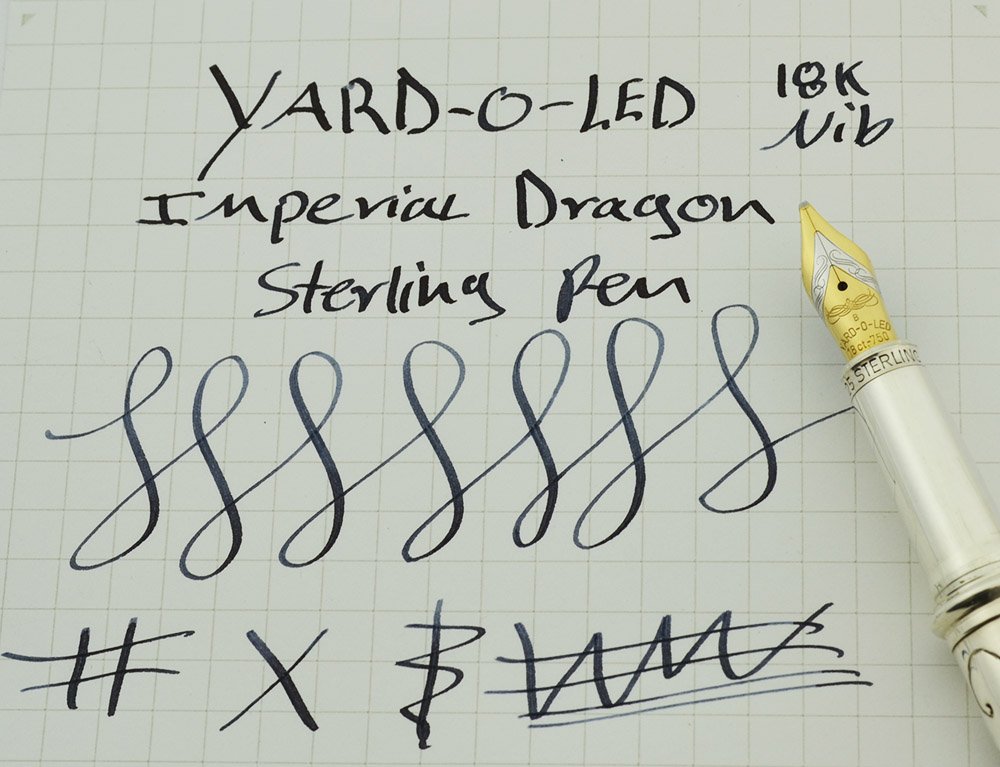 YARD-O-LED
18K
Nib
Imperial Dragon
Sterling Pen
# X $
B
YARD-O-LED
18ct-750
STERLING